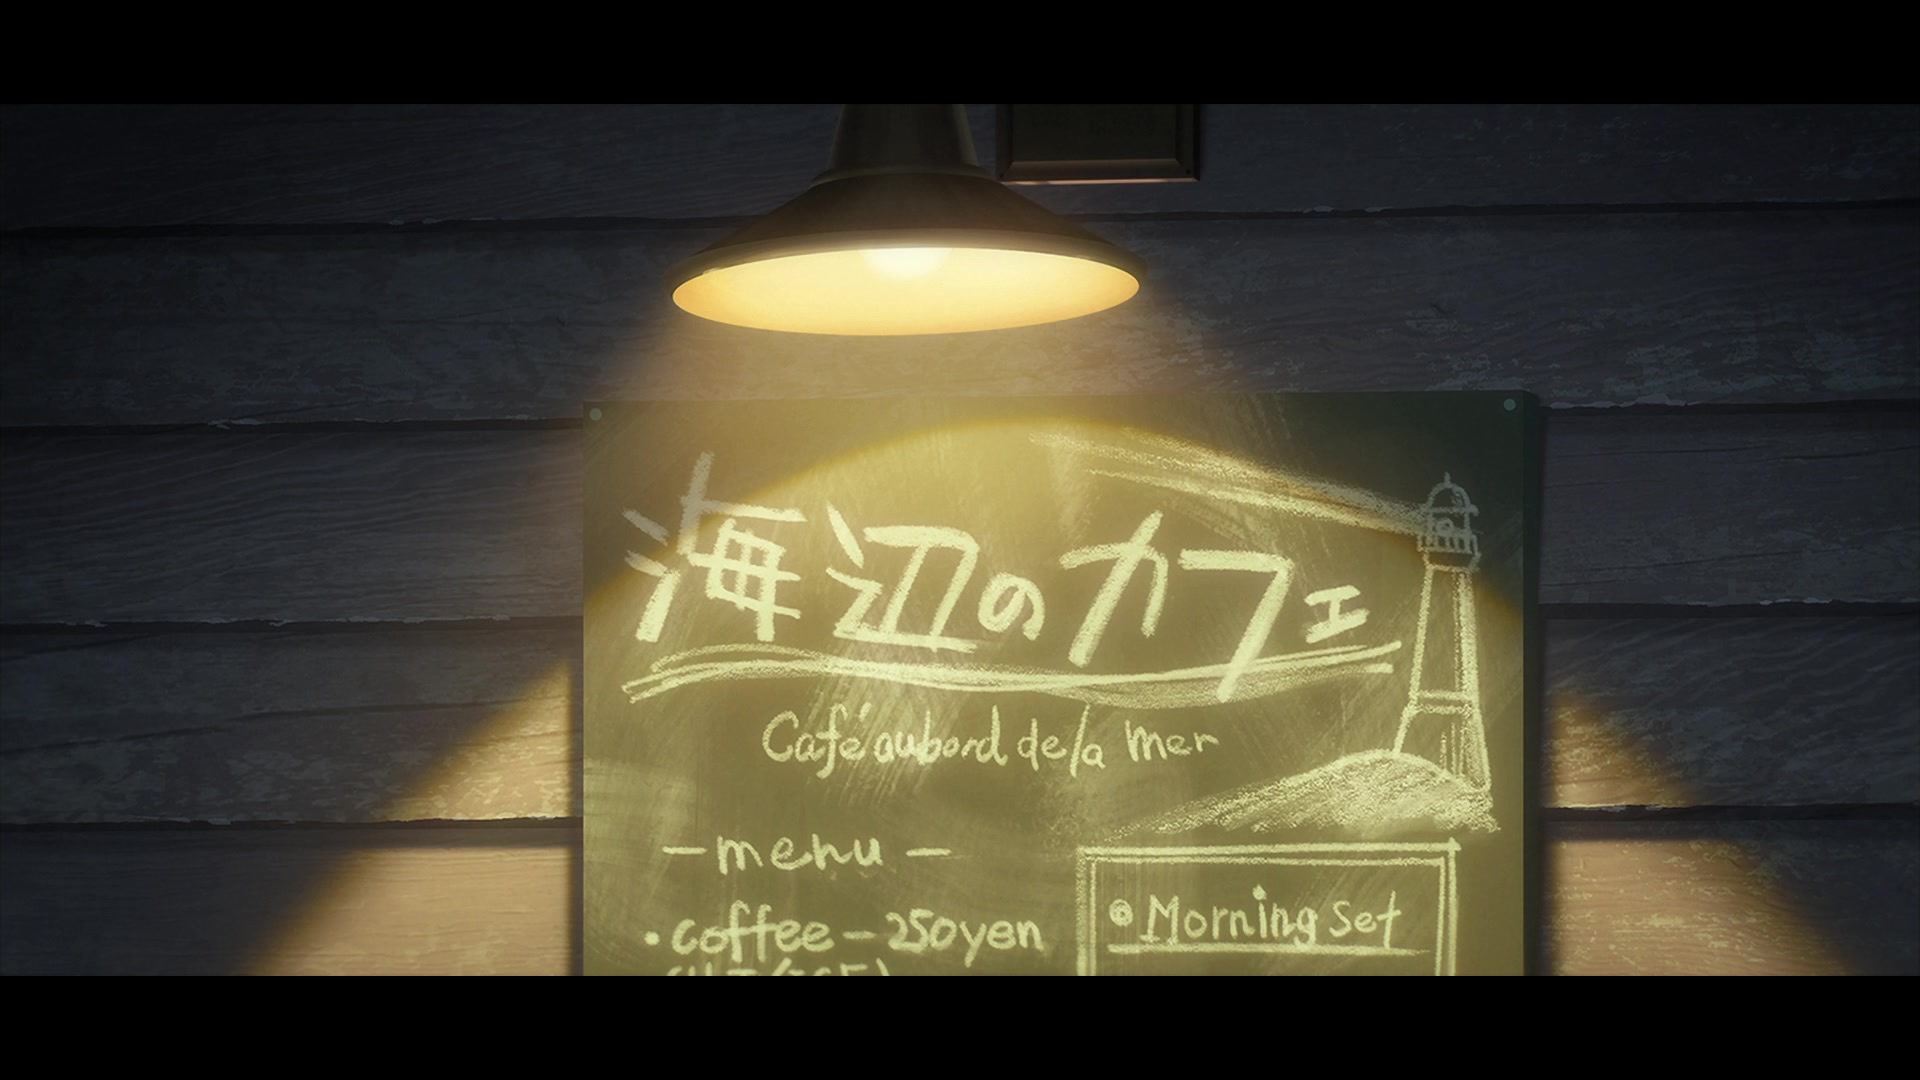 海辺のカフェ
Café au bord de la mer
— menu —
• coffee — 250yen
• Morning Set